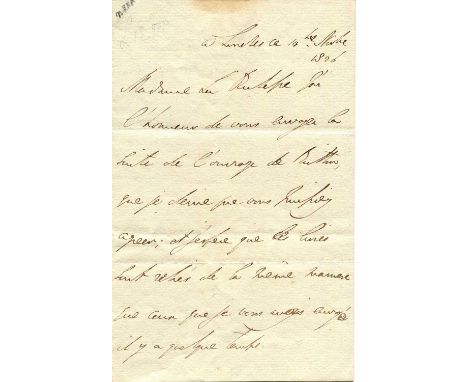 a Londres ce 10 bre
1806
Madame la Duchesse J'ai
l'honneur de vous envoyer la
suite de l'ouvrage de
que je desire que vous puissiez
agréer; et j'espère que les livres
sont reliés de la même maniere
que ceux que je vous envoyé
il y a quelque temps.